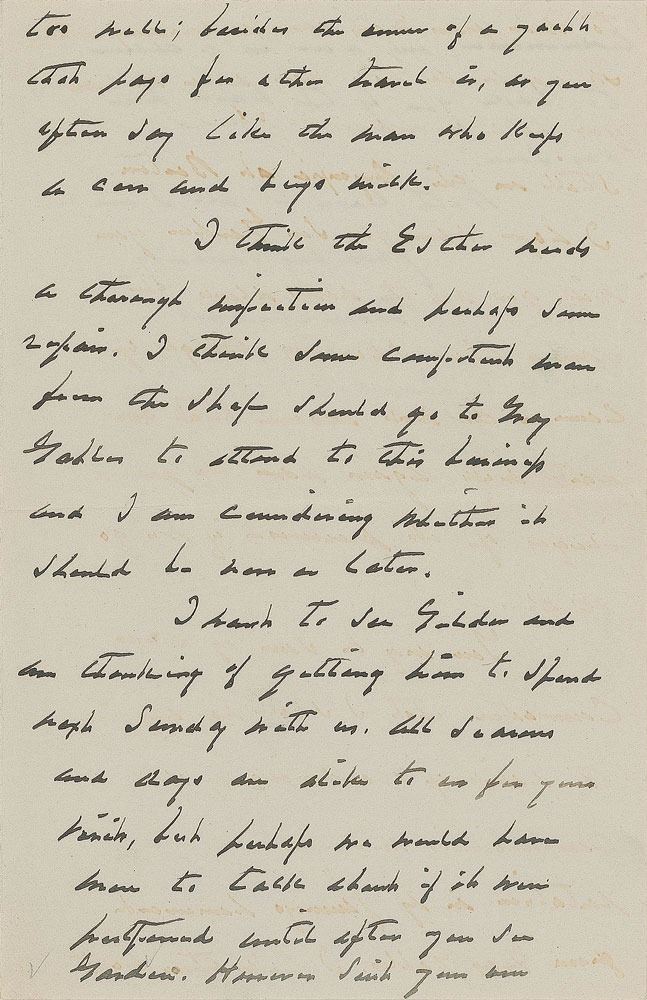 too well; besides the owner of a yacht
that pays for other travel is, as you
often say like the man who keeps
a cow and buys milk.
I think the Esther needs
a thorough inspection and perhaps some
repairs. I think some competent man
from the shops should go to Gray
Gables to attend to this business
and I am considering whether it
should be now or later.
I want to see Gilder and
am thinking of getting him to spend
next Sunday with us. All seasons
and days are alike to us for your
visit, but perhaps we would have
more to talk about if it were
postponed until after you see
Garden. However suit your own